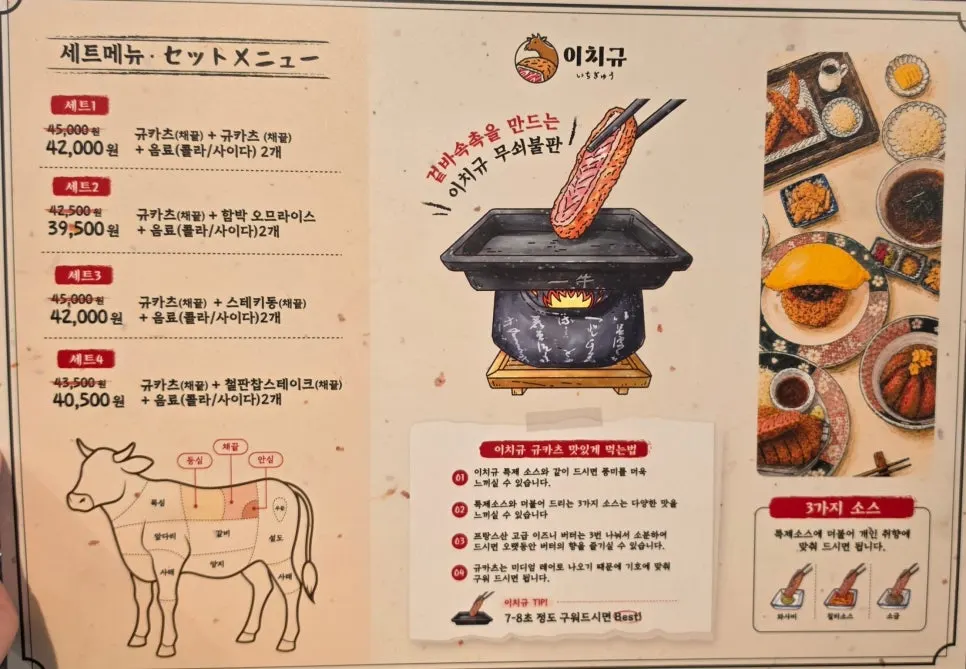 세트메뉴·セットメニュー
세트1
45,000원
42,000원
규카츠(채끝) + 규카츠 (채끝)
+ 음료(콜라/사이다) 2개
세트2
42,500원
39,500원
규카츠(채끝) + 함박 오므라이스
+ 음료(콜라/사이다)2개
세트3
45,000원
42,000원
규카츠(채끝) + 스테키동(채끝)
+ 음료(콜라/사이다)2개
세트4
43,500원
40,500원
규카츠(채끝) + 철판찹스테이크(채끝)
+ 음료(콜라/사이다)2개
등심
채끝
안심
목심
앞다리
갈비
설도
사태
양지
사태
이치규
いちぎゅう
겉바속촉을 만드는
이치규 무쇠불판
一牛
이치규 규카츠 맛있게 먹는법
01 이치규 특제 소스와 같이 드시면 풍미를 더욱
느끼실 수 있습니다.
02 특제소스와 더불어 드리는 3가지 소스는 다양한 맛을
느끼실 수 있습니다
03 프랑스산 고급 이즈니 버터는 3번 나눠서 소분하여
드시면 오랫동안 버터의 향을 즐기실 수 있습니다.
04 규카츠는 미디엄 레어로 나오기 때문에 기호에 맞춰
구워 드시면 됩니다.
이치규 TIP!
7-8초 정도 구워드시면 Best!
3가지 소스
특제소스에 더불어 개인 취향에
맞춰 드시면 됩니다.
와사비
칠리소스
소금